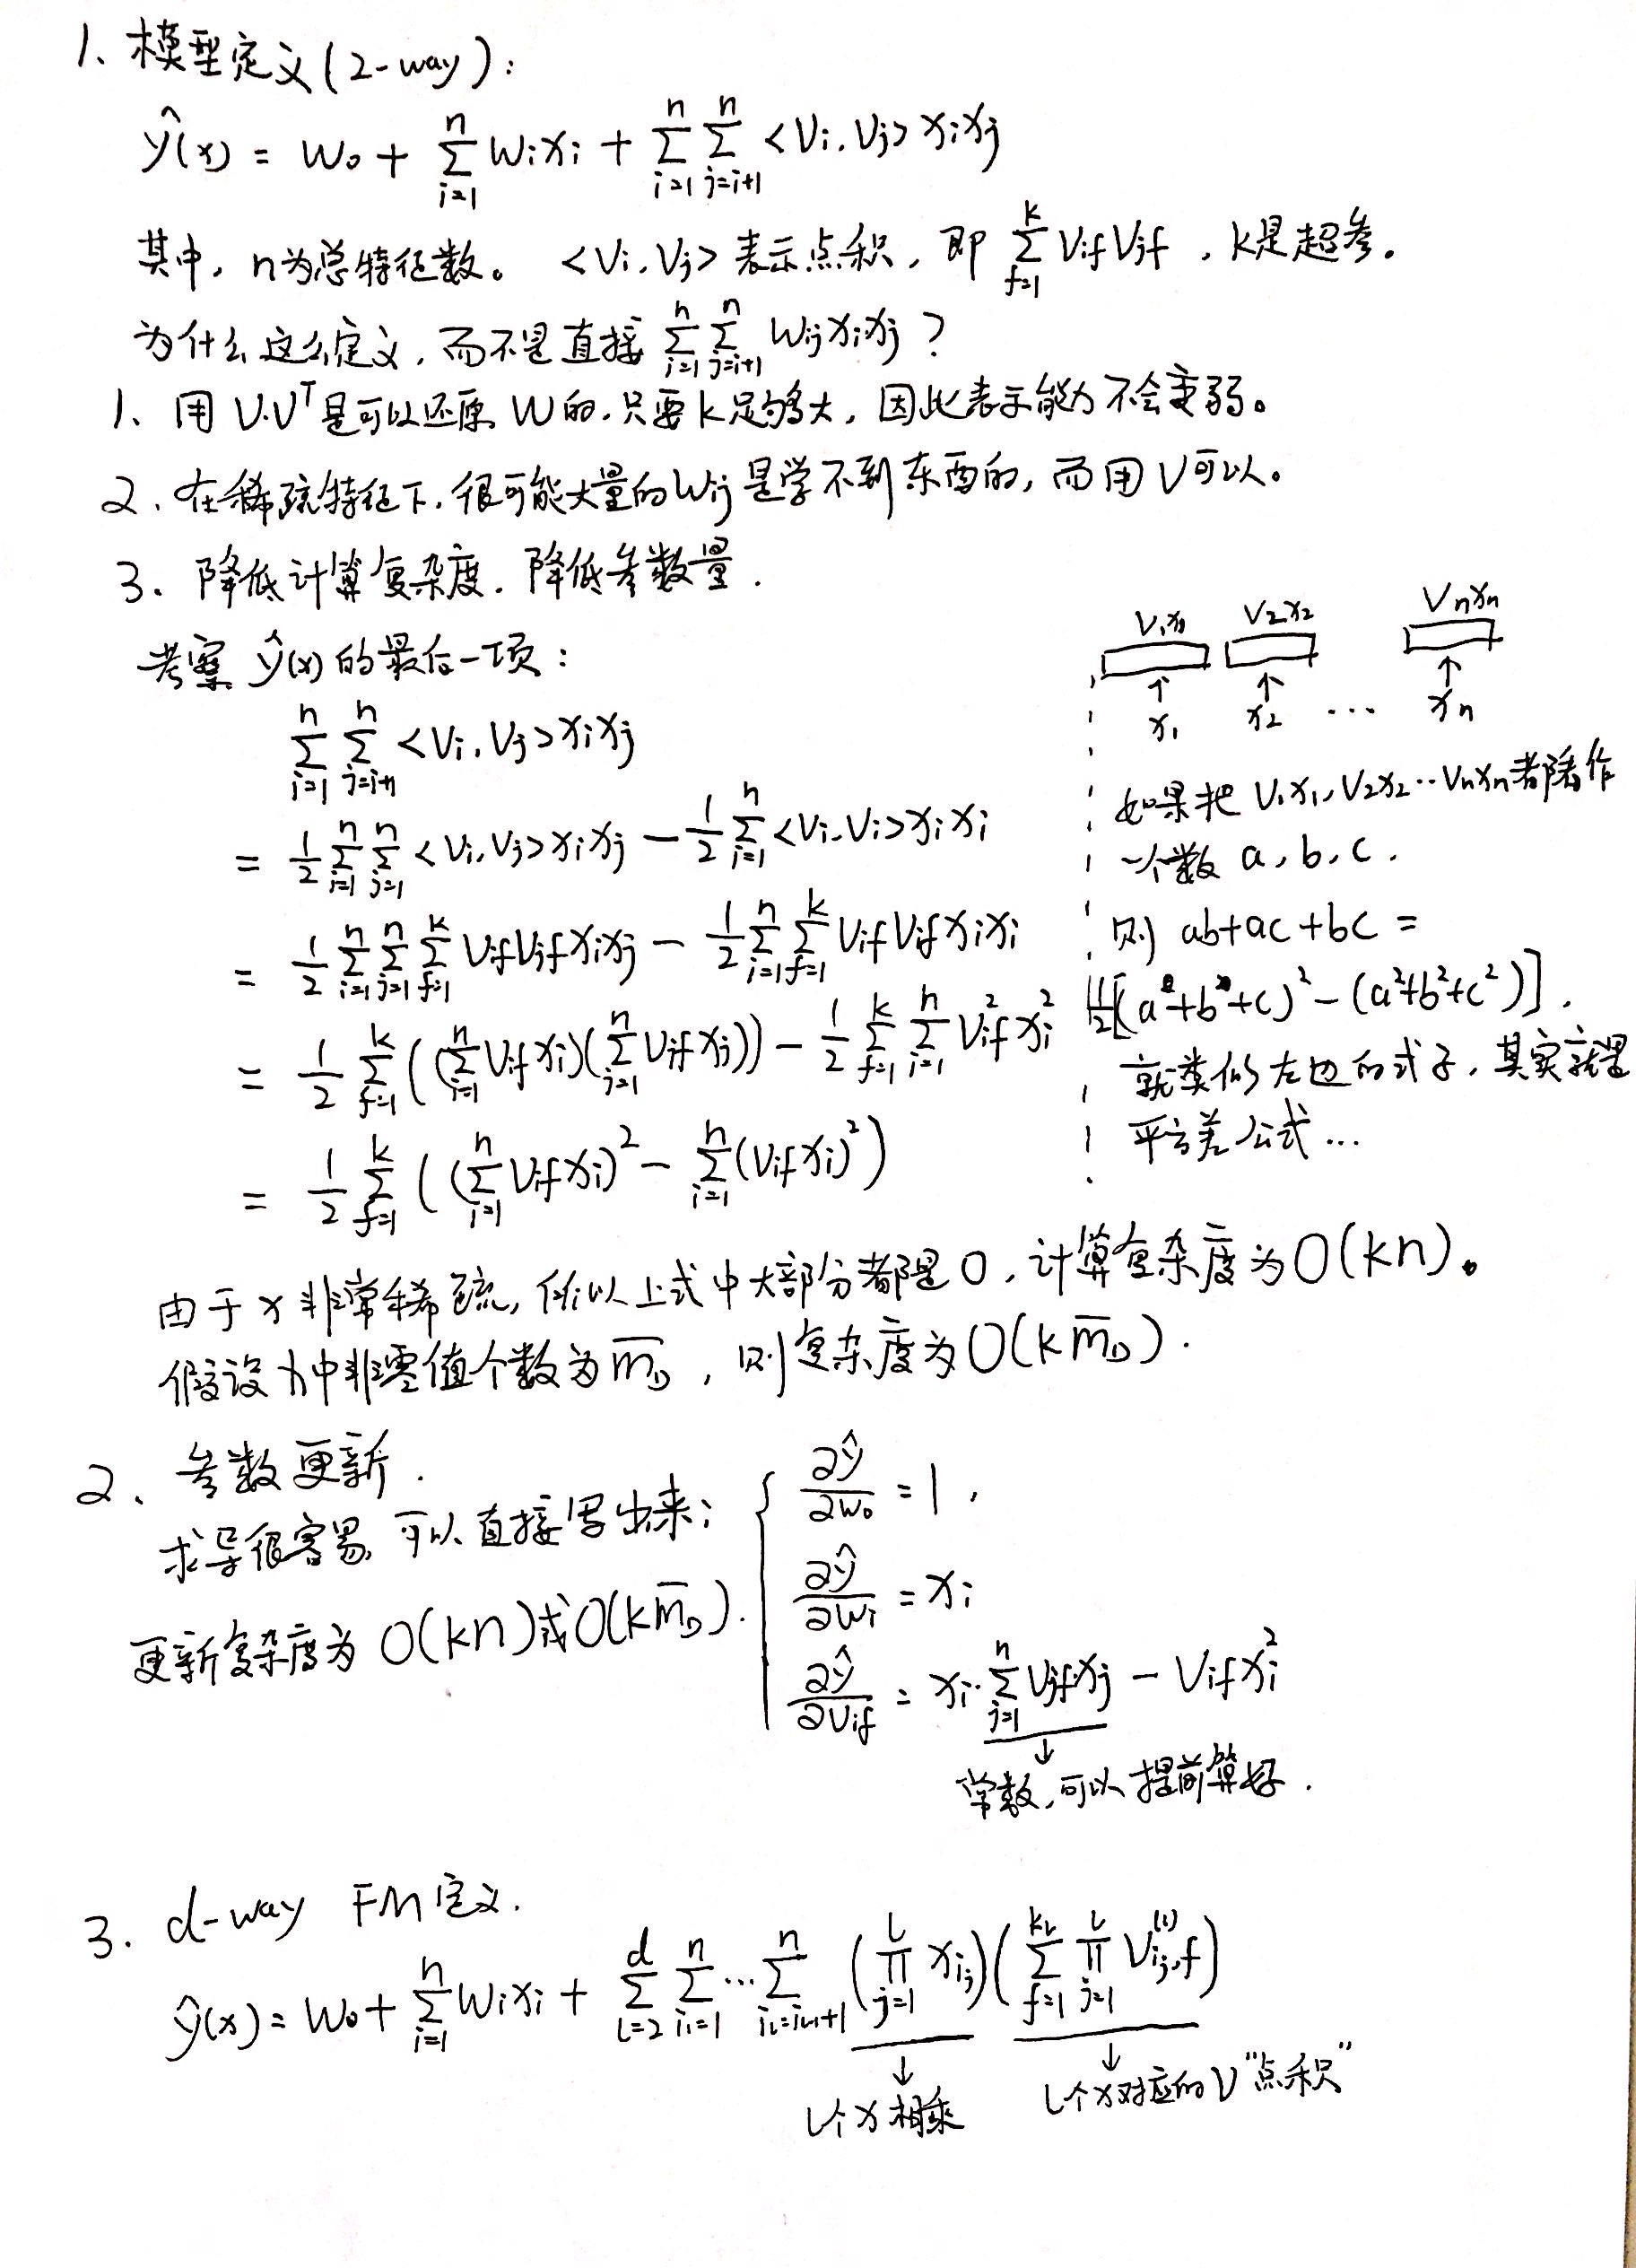 1、模型定义(2-way):
ŷ(x) = w₀ + Σ_{i=1}^{n} wᵢxᵢ + Σ_{i=1}^{n} Σ_{j=i+1}^{n} <Vᵢ, Vⱼ> xᵢxⱼ
其中, n为总特征数。 <Vᵢ, Vⱼ> 表示点积, 即 Σ_{f=1}^{k} V_{if}V_{jf} , k是超参.
为什么这么定义, 而不是直接 Σ_{i=1}^{n} Σ_{j=i+1}^{n} w_{ij}xᵢxⱼ ?
1、用 V·Vᵀ 是可以还原 W 的, 只要 k 足够大, 因此表示能力不会变弱。
2、在稀疏特征下, 很可能大量的 w_{ij} 是学不到东西的, 而用 V 可以。
3、降低计算复杂度. 降低参数量.
考察 ŷ(x) 的最后一项:
Σ_{i=1}^{n} Σ_{j=i+1}^{n} <Vᵢ, Vⱼ> xᵢxⱼ
= ½ Σ_{i=1}^{n} Σ_{j=1}^{n} <Vᵢ, Vⱼ> xᵢxⱼ − ½ Σ_{i=1}^{n} <Vᵢ, Vᵢ> xᵢxᵢ
= ½ Σ_{i=1}^{n} Σ_{j=1}^{n} Σ_{f=1}^{k} V_{if}V_{jf}xᵢxⱼ − ½ Σ_{i=1}^{n} Σ_{f=1}^{k} V_{if}V_{if}xᵢxᵢ
= ½ Σ_{f=1}^{k} ((Σ_{i=1}^{n} V_{if}xᵢ)(Σ_{j=1}^{n} V_{jf}xⱼ)) − ½ Σ_{f=1}^{k} Σ_{i=1}^{n} V_{if}²xᵢ²
= ½ Σ_{f=1}^{k} ((Σ_{i=1}^{n} V_{if}xᵢ)² − Σ_{i=1}^{n} (V_{if}xᵢ)²)
V₁x₁ V₂x₂ Vₙxₙ
↑ ↑ ↑
x₁ x₂ … xₙ
如果把 V₁x₁, V₂x₂ … Vₙxₙ 都看作
一个数 a, b, c .
则 ab+ac+bc =
½[(a+b+c)² − (a²+b²+c²)].
就类似左边的式子, 其实就是
平方差公式…
由于 x 非常稀疏, 所以上式中大部分都是 0, 计算复杂度为 O(kn)。
假设 x 中非零值个数为 m̄_D , 则复杂度为 O(k m̄_D).
2、参数更新.
求导很容易, 可以直接写出来:
更新复杂度为 O(kn) 或 O(k m̄_D).
∂ŷ/∂w₀ = 1 ,
∂ŷ/∂wᵢ = xᵢ
∂ŷ/∂V_{if} = xᵢ· Σ_{j=1}^{n} V_{jf}xⱼ − V_{if}xᵢ²
↓
常数, 可以提前算好.
3. d-way FM定义.
ŷ(x) = w₀ + Σ_{i=1}^{n} wᵢxᵢ + Σ_{l=2}^{d} Σ_{i₁=1}^{n} … Σ_{i_l=i_{l-1}+1}^{n} (Π_{j=1}^{l} x_{i_j})(Σ_{f=1}^{k_l} Π_{j=1}^{l} V_{i_j,f}^{(l)})
↓ ↓
l个x相乘 l个x对应的V"点积"